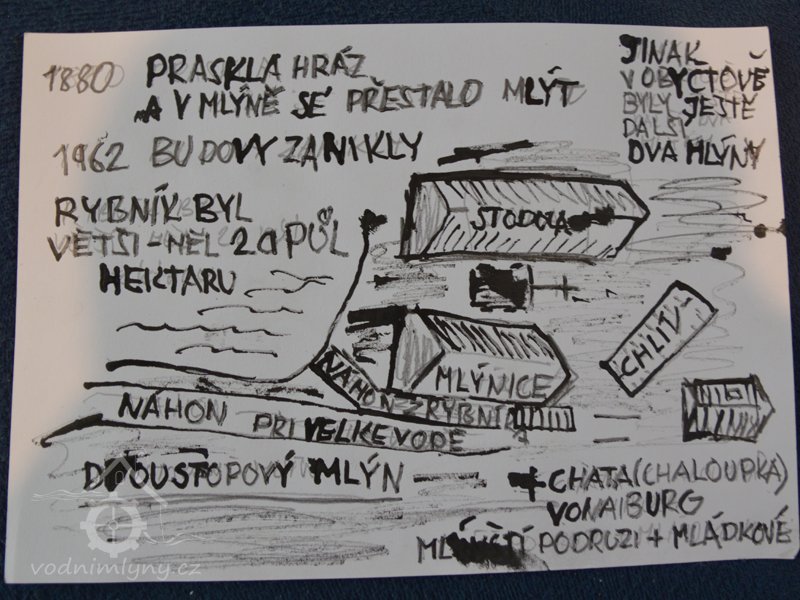 1880 PRASKLA HRÁZ
A V MLÝNĚ SE PŘESTALO MLÝT
1962 BUDOVY ZANIKLY
RYBNÍK BYL
VĚTŠÍ - MĚL 2 a PŮL
HEKTARU
JINAK
V OBYCTOVĚ
BYLY JEŠTĚ
DALŠÍ
DVA MLÝNY
STODOLA
CHLÍV
MLÝNICE
NÁHON Z RYBNÍ
NÁHON PŘI VELKÉ VODĚ
DVOUSTOPOVÝ MLÝN
+ CHATA (CHALOUPKA)
VONAIBURG
PODRUZI + MLÁDKOVÉ
vodnimlyny.cz